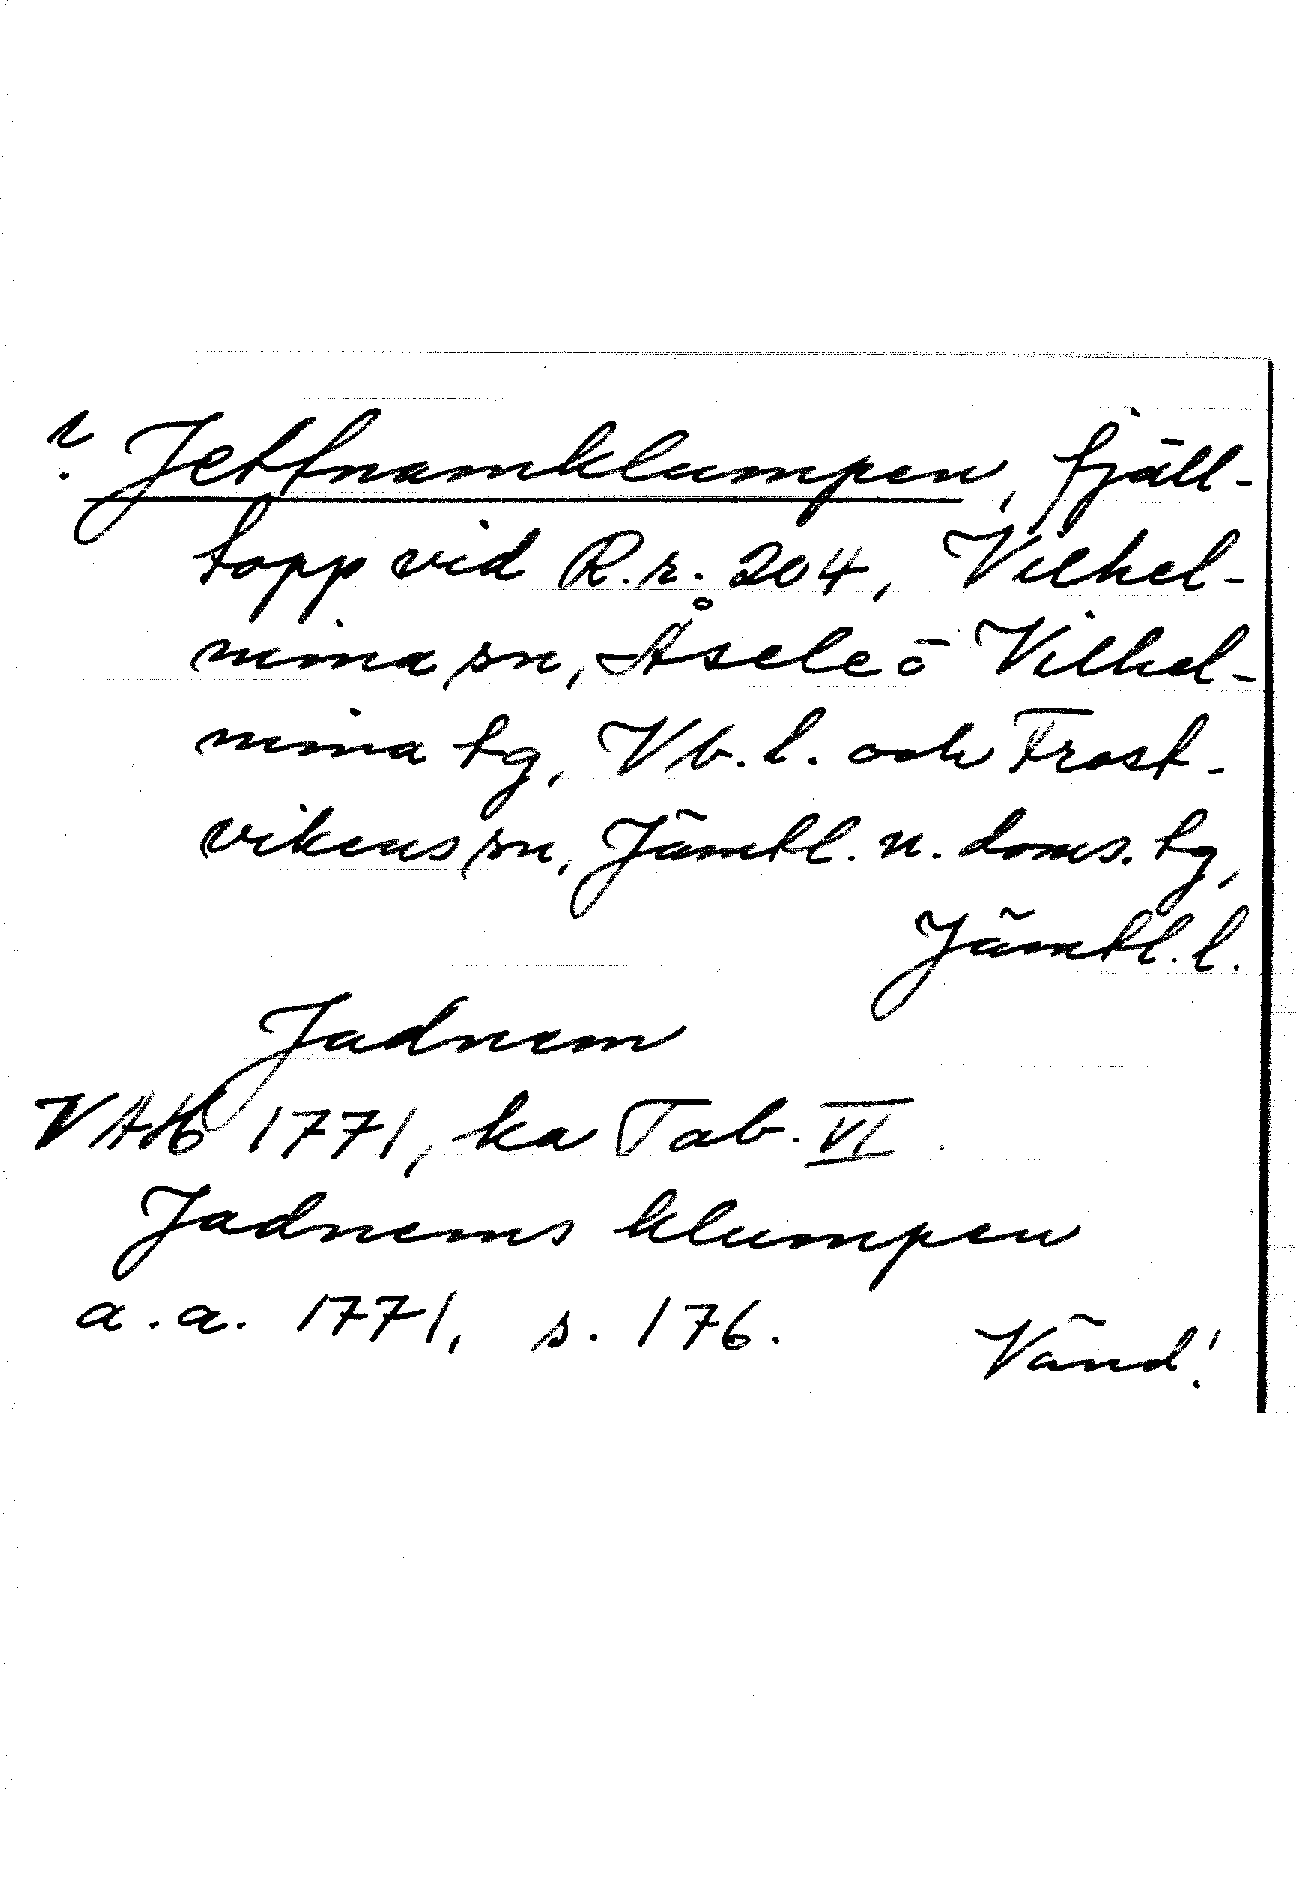 ? Jetfnamklumpen, fjäll-
topp vid R.r. 204, Vilhel-
mina sn, Åsele o Vilhel-
mina tg, Vb. l. och Frost-
vikens sn, Jämtl. n. doms. tg,
Jämtl. l.
Jadnem
VAH 1771, ka Tab. VI
Jadnems klumpen
a.a. 1771, s. 176.
Vänd!